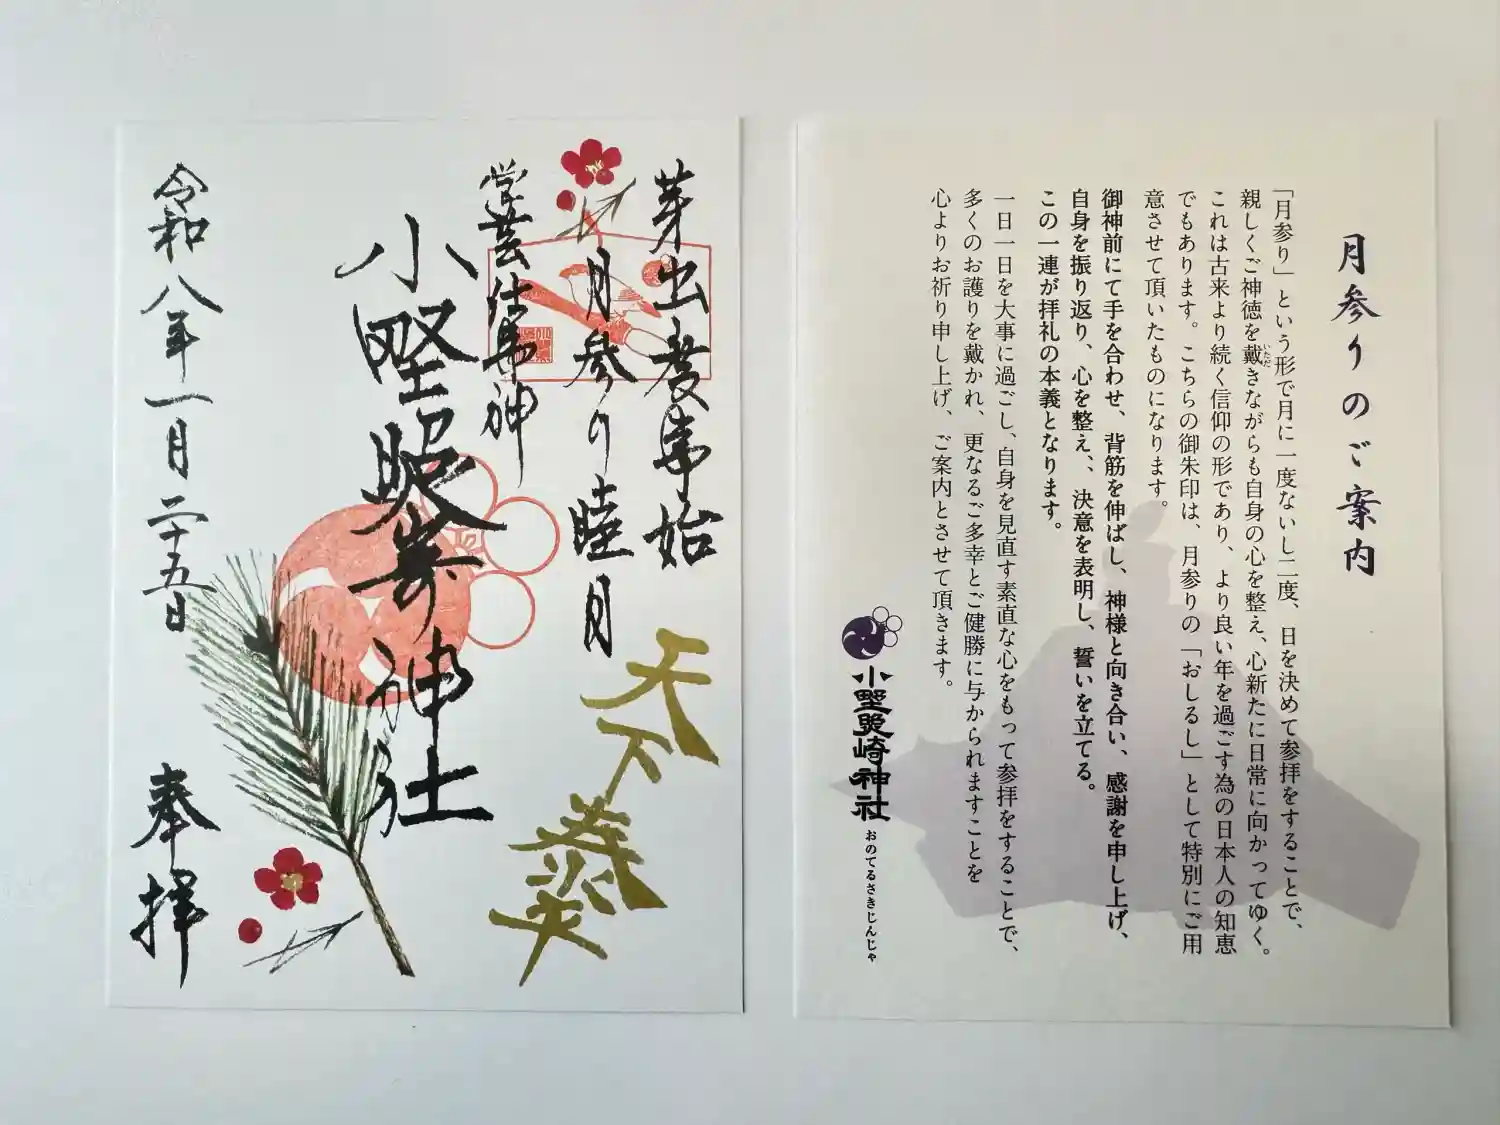 芽出度事始
月参り睦月
学芸仕事神
小野照崎神社
天下泰平
令和八年一月二十五日
奉拝
月参りのご案内
「月参り」という形で月に一度ないし二度、日を決めて参拝をすることで、
親しくご神徳を戴きながらも自身の心を整え、心新たに日常に向かってゆく。
いただ
これは古来より続く信仰の形であり、より良い年を過ごす為の日本人の知恵
でもあります。こちらの御朱印は、月参りの「おしるし」として特別にご用
意させて頂いたものになります。
御神前にて手を合わせ、背筋を伸ばし、神様と向き合い、感謝を申し上げ、
自身を振り返り、心を整え、、決意を表明し、誓いを立てる。
この一連が拝礼の本義となります。
一日一日を大事に過ごし、自身を見直す素直な心をもって参拝をすることで、
多くのお護りを戴かれ、更なるご多幸とご健勝に与かられますことを
心よりお祈り申し上げ、ご案内とさせて頂きます。
小野照崎神社
おのてるさきじんじゃ